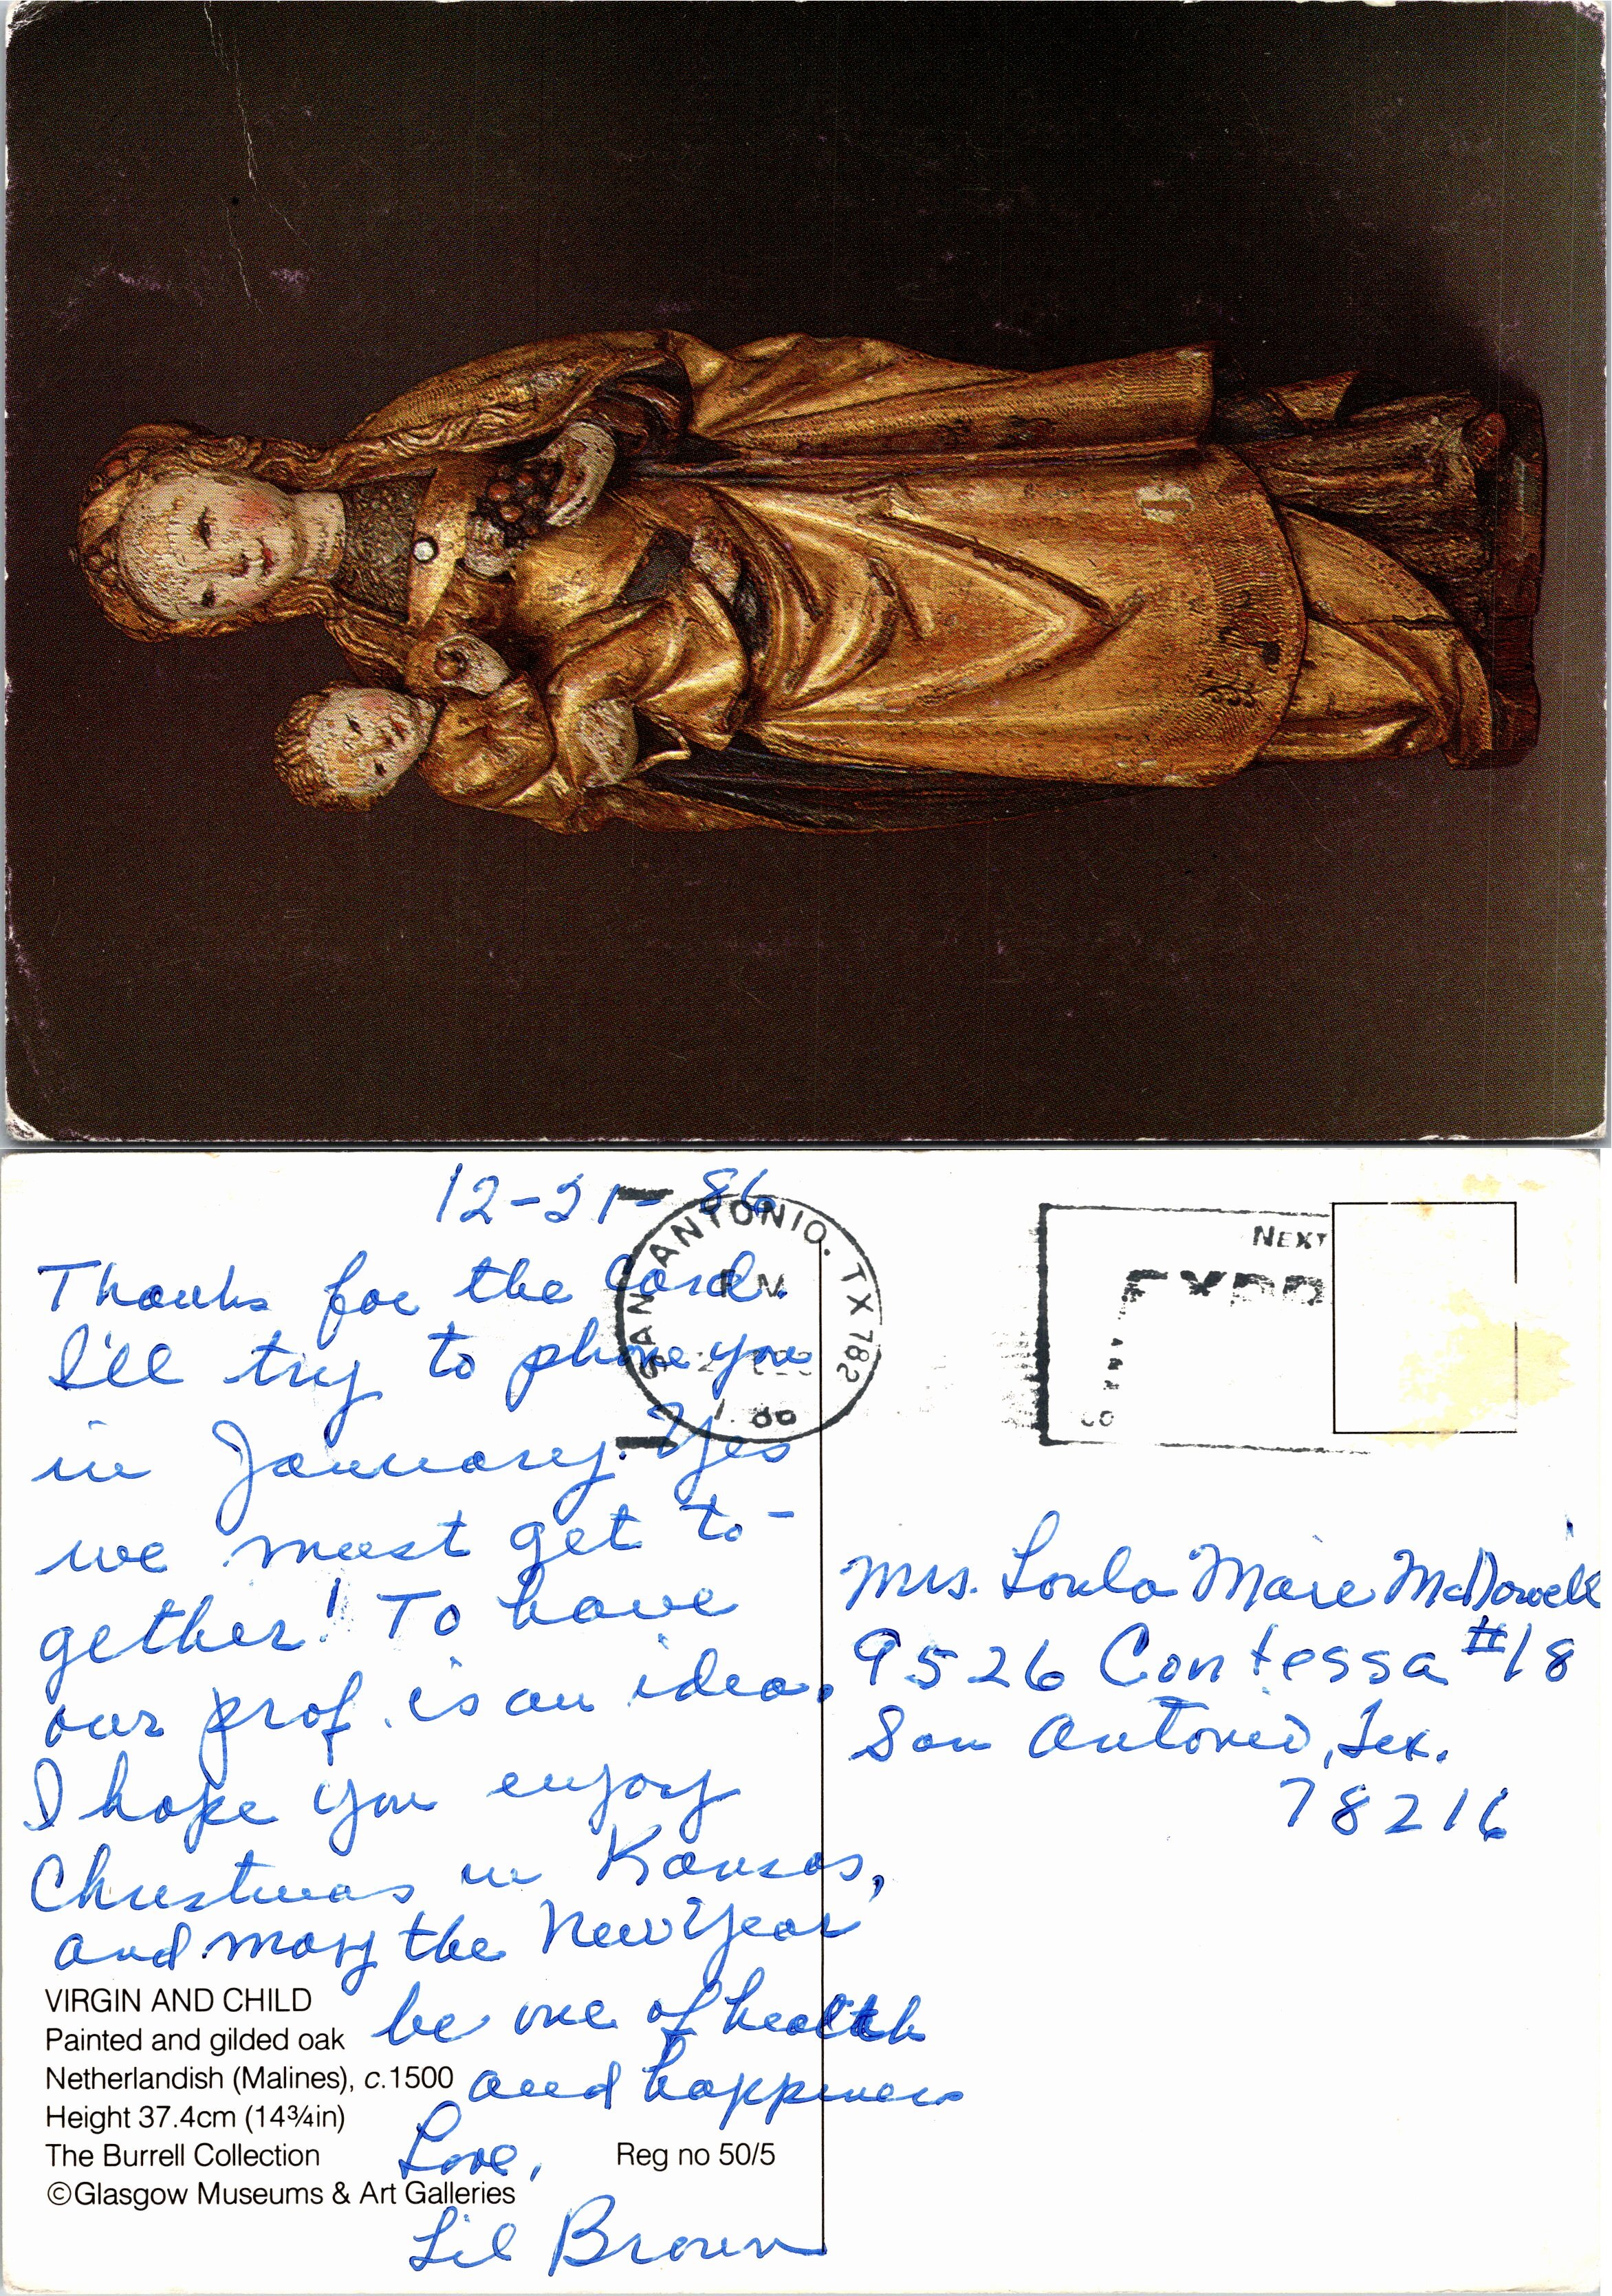 12-21-86
Thanks for the card.
I'll try to phone you
in January. Yes
we must get to-
gether! To have
our prof. is an idea.
I hope you enjoy
Christmas in Kansas,
and may the New Year
be one of health
and happiness
Love,
Lil Brown
VIRGIN AND CHILD
Painted and gilded oak
Netherlandish (Malines), c.1500
Height 37.4cm (14¾in)
The Burrell Collection
Reg no 50/5
©Glasgow Museums & Art Galleries
SAN ANTONIO. TX 782
PM
DEC
NEXT
Mrs. Loula Mare McDowell
9526 Contessa #18
San Antonio, Tex.
78216